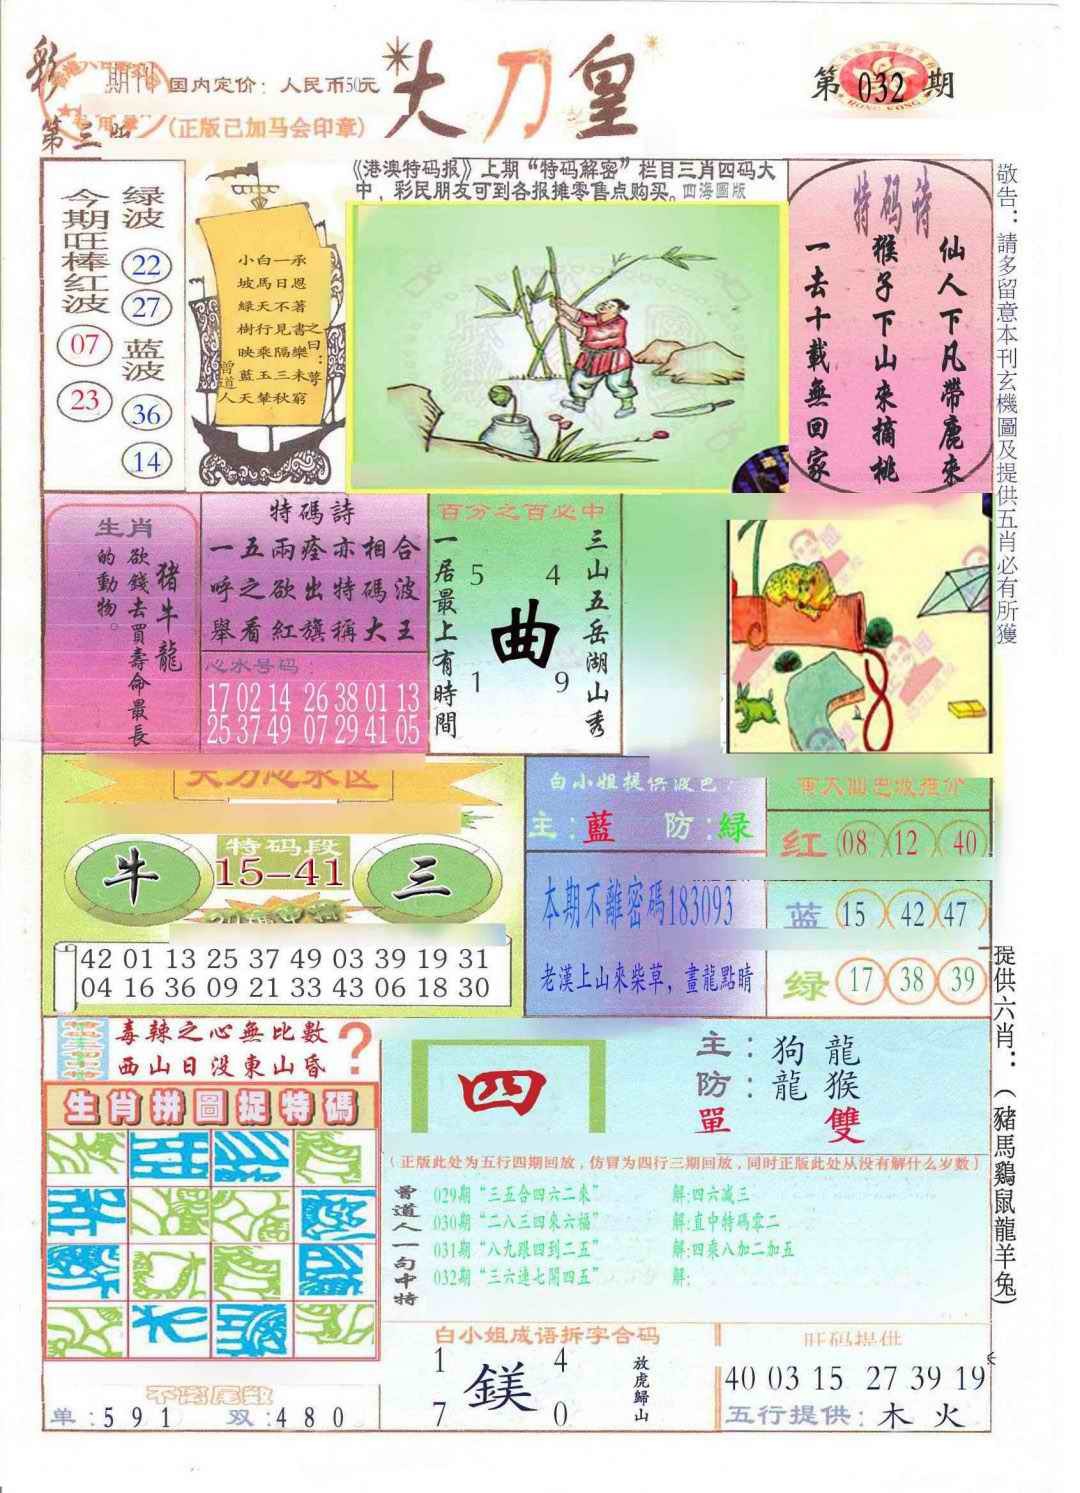 彩
期刊
国内定价：人民币50元
(正版已加马会印章)
第三版
大刀皇
第032期
HONG KONG
《港澳特码报》上期“特码解密”栏目三肖四码大
中，彩民朋友可到各报摊零售点购买。四海圖版
今期旺棒红波
07
23
绿波
22
27
蓝波
36
14
承恩著書樂未窮
一日不見隔三秋
白馬天行乘玉輦
小坡綠樹映藍天
之曰：
曾道人
特码诗
仙人下凡帶鹿來
猴子下山來摘桃
一去十載無回家
敬告：請多留意本刊玄機圖及提供五肖必有所獲
生肖
猪牛龍
欲錢去買壽命最長
的動物。
特碼詩
一五兩痊亦相合
呼之欲出特碼波
舉看紅旗稱大王
心水号码：
17 02 14 26 38 01 13
25 37 49 07 29 41 05
百分之百必中
三山五岳湖山秀
一居最上有時間
5 4
曲
1 9
牛
特码段
15-41
三
42 01 13 25 37 49 03 39 19 31
04 16 36 09 21 33 43 06 18 30
白小姐提供波色：
主：藍 防：緑
本期不離密碼183093
老漢上山來柴草，畫龍點晴
红 08 12 40
蓝 15 42 47
绿 17 38 39
提供六肖：（豬馬鷄鼠龍羊兔）
毒辣之心無比數
西山日没東山昏
?
生肖拼圖捉特碼
四
主：狗 龍
防：龍 猴
單 雙
（正版此处为五行四期回放，仿冒为四行三期回放，同时正版此处从没有解什么岁数）
曾道人一句中特
029期“三五合四六二來” 解:四六减三
030期“二八三四來六福” 解:直中特碼零二
031期“八九跟四到二五” 解:四乘八加二加五
032期“三六連七開四五” 解:
白小姐成语拆字合码
1 4
鎂
7 0
放虎歸山
旺码提供
40 03 15 27 39 19
五行提供：木 火
单：5 9 1 双：4 8 0